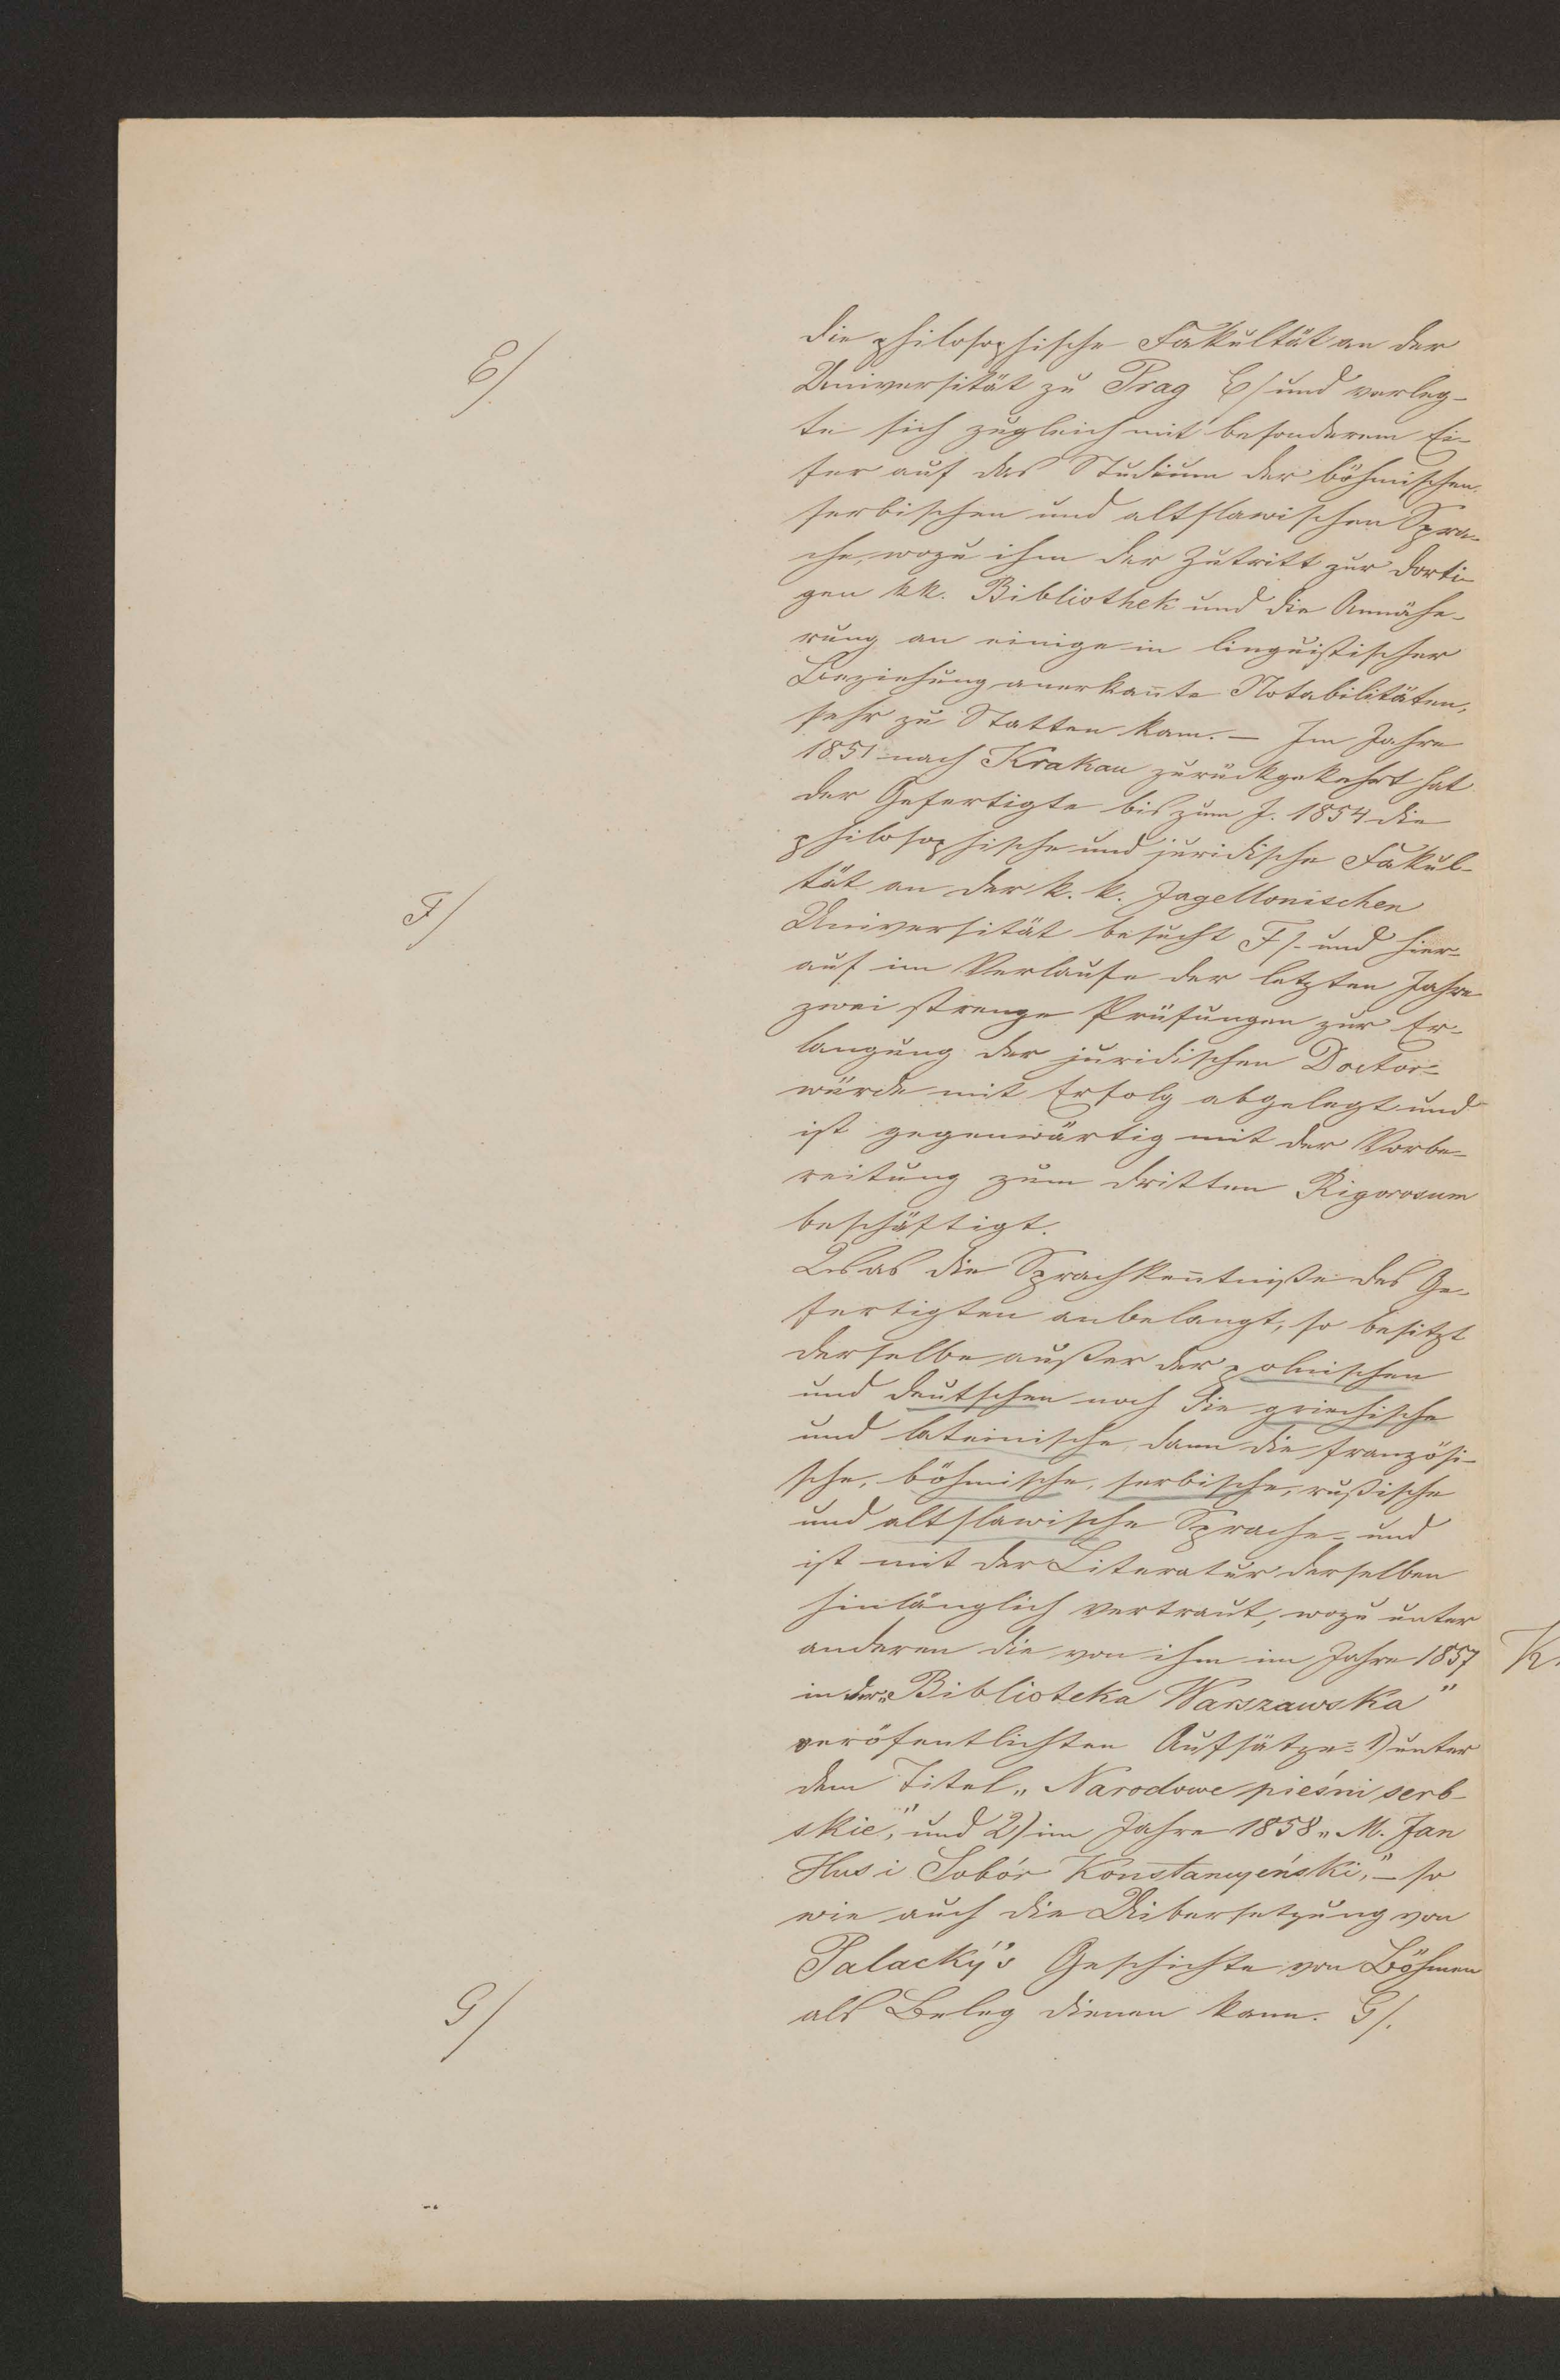 E/
die philosophische Fakultät an der
Universität zu Prag E/ und verleg-
te sich zugleich mit besonderem Ei-
fer auf das Studium der böhmischen,
serbischen und altslawischen Spra-
che, wozu ihm der Zutritt zur dorti-
gen kk. Bibliothek und die Annähe-
rung an einige in linguistischer
Beziehung anerkan̄te Notabilitäten,
sehr zu Statten kam. – Im Jahre
1851 nach Krakau zurückgekehrt hat
der Gefertigte bis zum J. 1854 die
philosophische und juridische Fakul-
tät an der k. k. Jagellonischen
F/
Universität besucht F/. und hier-
auf im Verlaufe der letzten Jahre
zwei strenge Prüfungen zur Er-
langung der juridischen Doctor-
würde mit Erfolg abgelegt und
ist gegenwärtig mit der Vorbe-
reitung zum dritten Rigorosum
beschäftigt.
Was die Sprachken̄tniße des Ge-
fertigten anbelangt, so besitzt
derselbe außer der polnischen
und deutschen noch die griechische
und lateinische, dann die französi-
sche, böhmische, serbische, rußische
und altslawische Sprache – und
ist mit der Literatur derselben
hinlänglich vertraut, wozu unter
anderen die von ihm im Jahre 1857
in der „Biblioteka Warszawska"
veröfentlichten Aufsätze: 1) unter
dem Titel „Narodowe pieśni serb-
skie," und 2) im Jahre 1858 „M. Jan
Hus i Sobór Konstancyeński," – so
wie auch die Uibersetzung von
Palacký's Geschichte von Böhmen
als Beleg dienen kann. G/.
G/
K